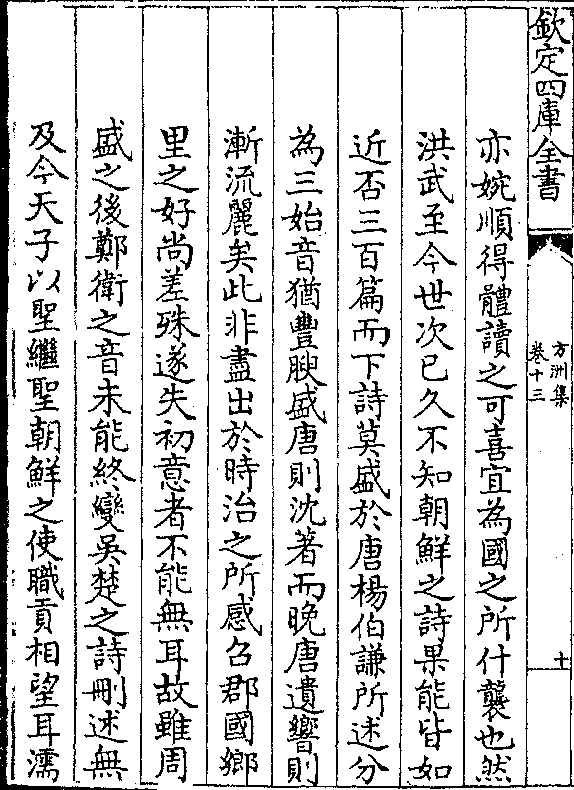 欽定四庫全書
方洲集
卷十三
十
亦婉順得體讀之可喜宜為國之所什襲也然
洪武至今世次已久不知朝鮮之詩果能皆如
近否三百篇而下詩莫盛於唐楊伯謙所述分
為三始音猶豐腴盛唐則沈著而晚唐遺響則
漸流麗矣此非盡出於時治之所感召郡國鄉
里之好尚差殊遂失初意者不能無耳故雖周
盛之後鄭衛之音未能終變吳楚之詩刪述無
及今天子以聖繼聖朝鮮之使職貢相望耳濡